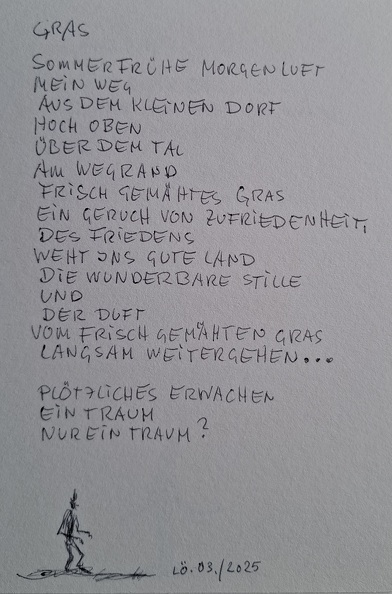 GRAS
SOMMERFRÜHE MORGENLUFT
MEIN WEG
AUS DEM KLEINEN DORF
HOCH OBEN
ÜBER DEM TAL
AM WEGRAND
FRISCH GEMÄHTES GRAS
EIN GERUCH VON ZUFRIEDENHEIT,
DES FRIEDENS
WEHT UNS GUTE LAND
DIE WUNDERBARE STILLE
UND
DER DUFT
VOM FRISCH GEMÄHTEN GRAS
LANGSAM WEITERGEHEN...
PLÖTZLICHES ERWACHEN
EIN TRAUM
NUR EIN TRAUM?
LÖ. 03./2025